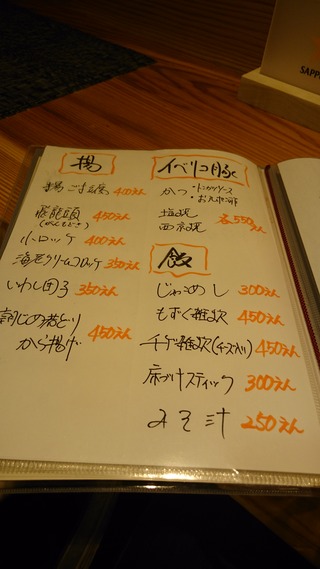 揚
揚ごま豆腐 400えん
飛龍頭 450えん
(がんもどき)
コロッケ 400えん
海老クリームコロッケ 350えん
いわし団子 350えん
若どり
から揚げ 450えん
イベリコ豚
かつ ・トンカツソース
・おろしポン酢
塩焼
西京焼 各550えん
飯
じゃこめし 300えん
もずく雑炊 450えん
チゲ雑炊(チーズ入り) 450えん
床づけスティック 300えん
みそ汁 250えん
SAPP